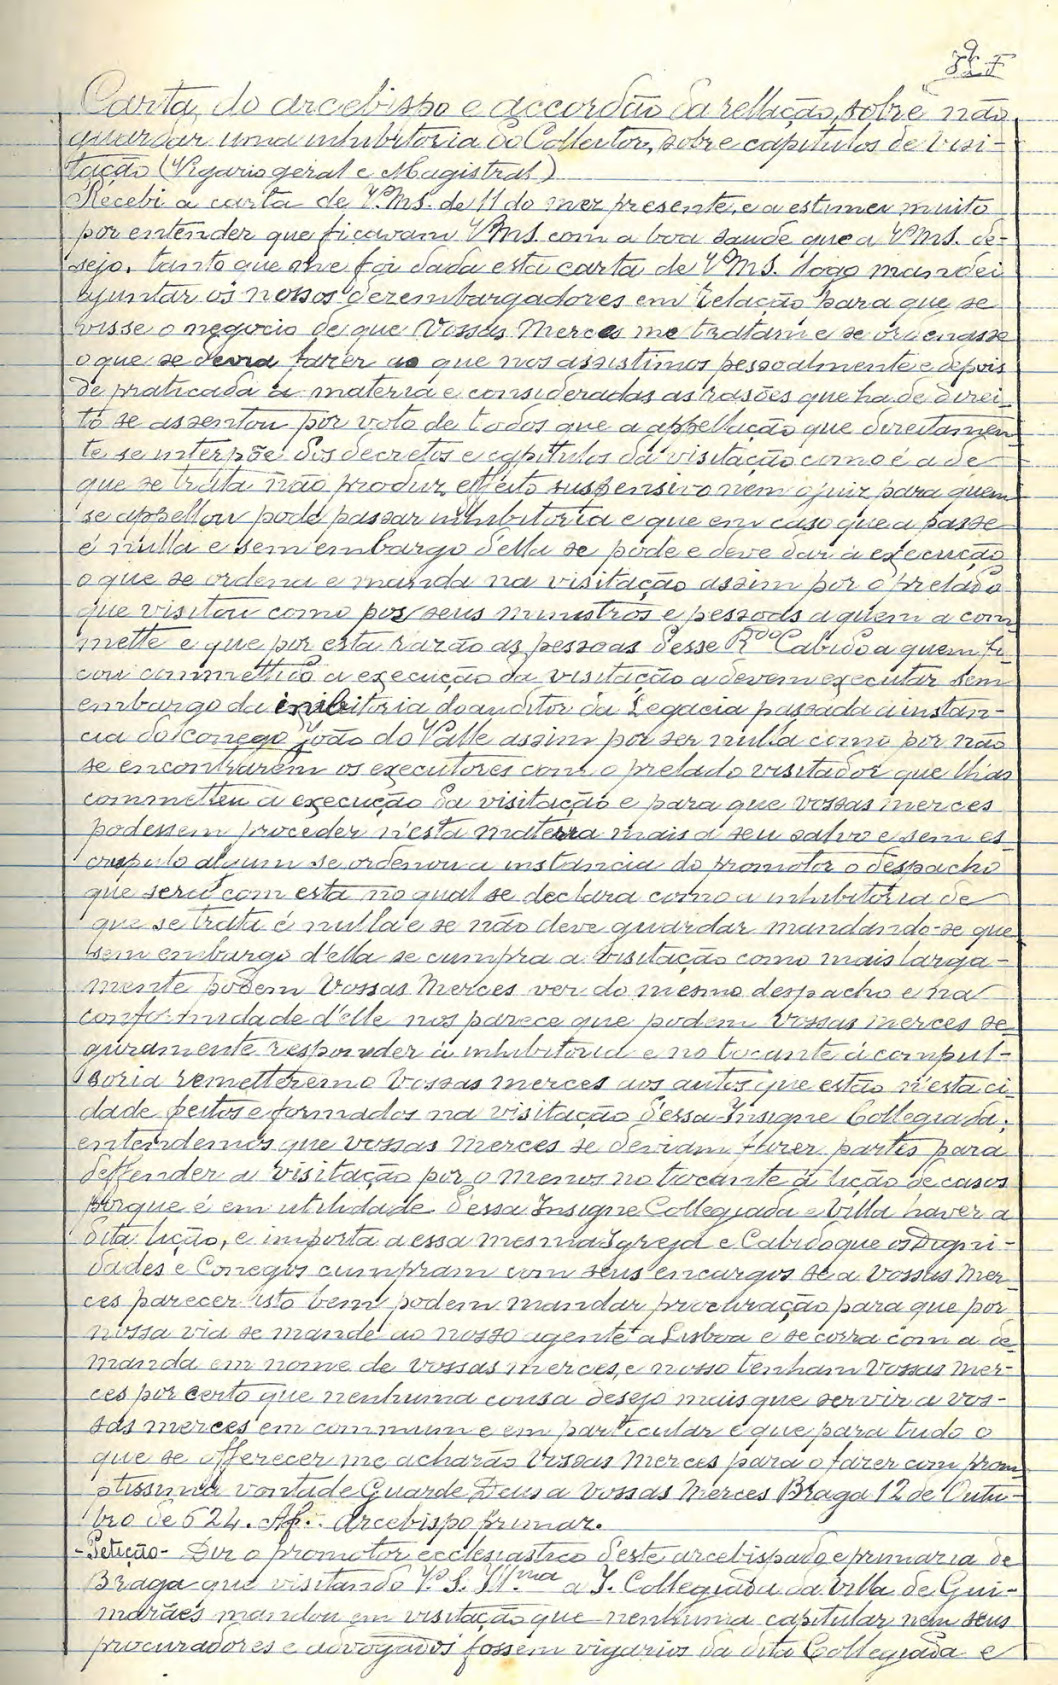 Carta, do arcebispo e accordão da rellação, sobre não
guardar uma inhibitoria do Colleitor, sobre capitulos de visi-
tação (Vigario geral e Magistral)
Recebi a carta de V.Ms. de 11 do mez presente, e a estimei muito
por entender que ficavam VMS. com a boa saude que a VMS. de-
sejo. tanto que me foi dada esta carta de VMS. logo mandei
ajuntar os nossos dezembargadores em relação para que se
visse o negocio de que Vossas Merces me tratam e se ordenasse
o que se devia fazer ao que nos assistimos pessoalmente e depois
de praticada a materia e consideradas as rasões que ha de direi-
to se assentou por voto de todos que a appellação que direitamen-
te se interpõe dos decretos e capitulos da visitação como é a de
que se trata não produz effeito suspensivo nem o juiz para quem
se appellou pode passar inhibitoria e que em caso que a passe
é nulla e sem embargo della se pode e deve dar á execução
o que se ordena e manda na visitação assim por o prelado
que visitou como por seus ministros e pessoas a quem a com-
mette e que por esta razão as pessoas desse Rdo Cabido a quem fi-
cou commettido a execução da visitação a devem executar sem
embargo da inibitoria do auditor da Legacia passada á instan-
cia do conego João do Valle assim por ser nulla como por não
se encontrarem os executores com o prelado visitador que lhas
commetteu a execução da visitação e para que vossas merces
podessem proceder n'esta materia mais a seu salvo e sem es-
crupulo algum se ordenou a instancia do promotor o despacho
que será com esta no qual se declara como a inhibitoria de
que se trata é nulla e se não deve guardar mandando-se que
sem embargo d'ella se cumpra a visitação como mais larga-
mente podem Vossas Merces ver do mesmo despacho e na
conformidade d'elle nos parece que podem Vossas merces se-
guramente responder á inhibitoria e no tocante á compul-
soria remetteremo Vossas merces aos autos que estão n'esta ci-
dade feitos e formados na visitação dessa Insigne Collegiada;
entendemos que vossas Merces se deviam fazer partes para
deffender a visitação por o menos no tocante á lição de casos
porque é em utilidade dessa Insigne Collegiada e Villa haver a
dita lição, e importa a essa mesma Igreja e Cabido que os Digni-
dades e Conegos cumpram com seus encargos se a Vossas Mer-
ces parecer isto bem podem mandar procuração para que por
nossa via se mande ao nosso agente a Lisboa e se corra com a de-
manda em nome de vossas merces, e nosso tenham Vossas Mer-
ces por certo que nenhuma cousa desejo mais que servir a vos-
sas merces em commum e em particular e que para tudo o
que se offerecer me acharão Vossas Merces para o fazer com prom-
ptissima vontade Guarde Deus a Vossas Merces Braga 12 de Outu-
bro de 624. Af. Arcebispo primaz.
-Petição- Diz o promotor ecclesiastico deste arcebispado e primazia de
Braga que visitando V. S. Illma a I. Collegiada da Villa de Gui-
marães mandou em visitação que nenhuma capitular nem seus
procuradores e advogados fossem vigarios da dita Collegiada e